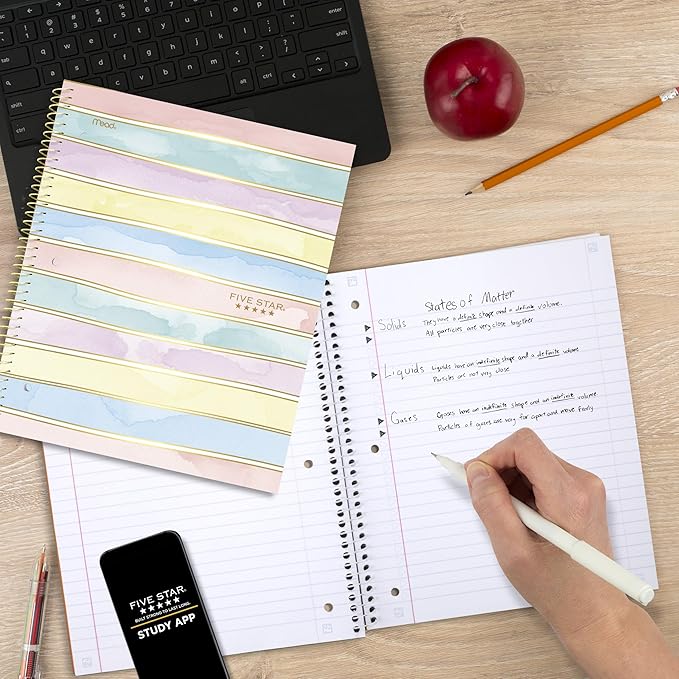 Mead
FIVE STAR
★★★★★
States of Matter
Solids
They have a definite shape and a definite volume.
All particles are very close together
Liquids
Liquids have an indefinite shape and a definite volume
Particles are not very close
Gases
Gases have an indefinite shape and an indefinite volume
Particles of gases are very far apart and move freely
FIVE STAR
★★★★★
BUILT STRONG TO LAST LONG.
STUDY APP
ctrl
alt
ctrl
shift